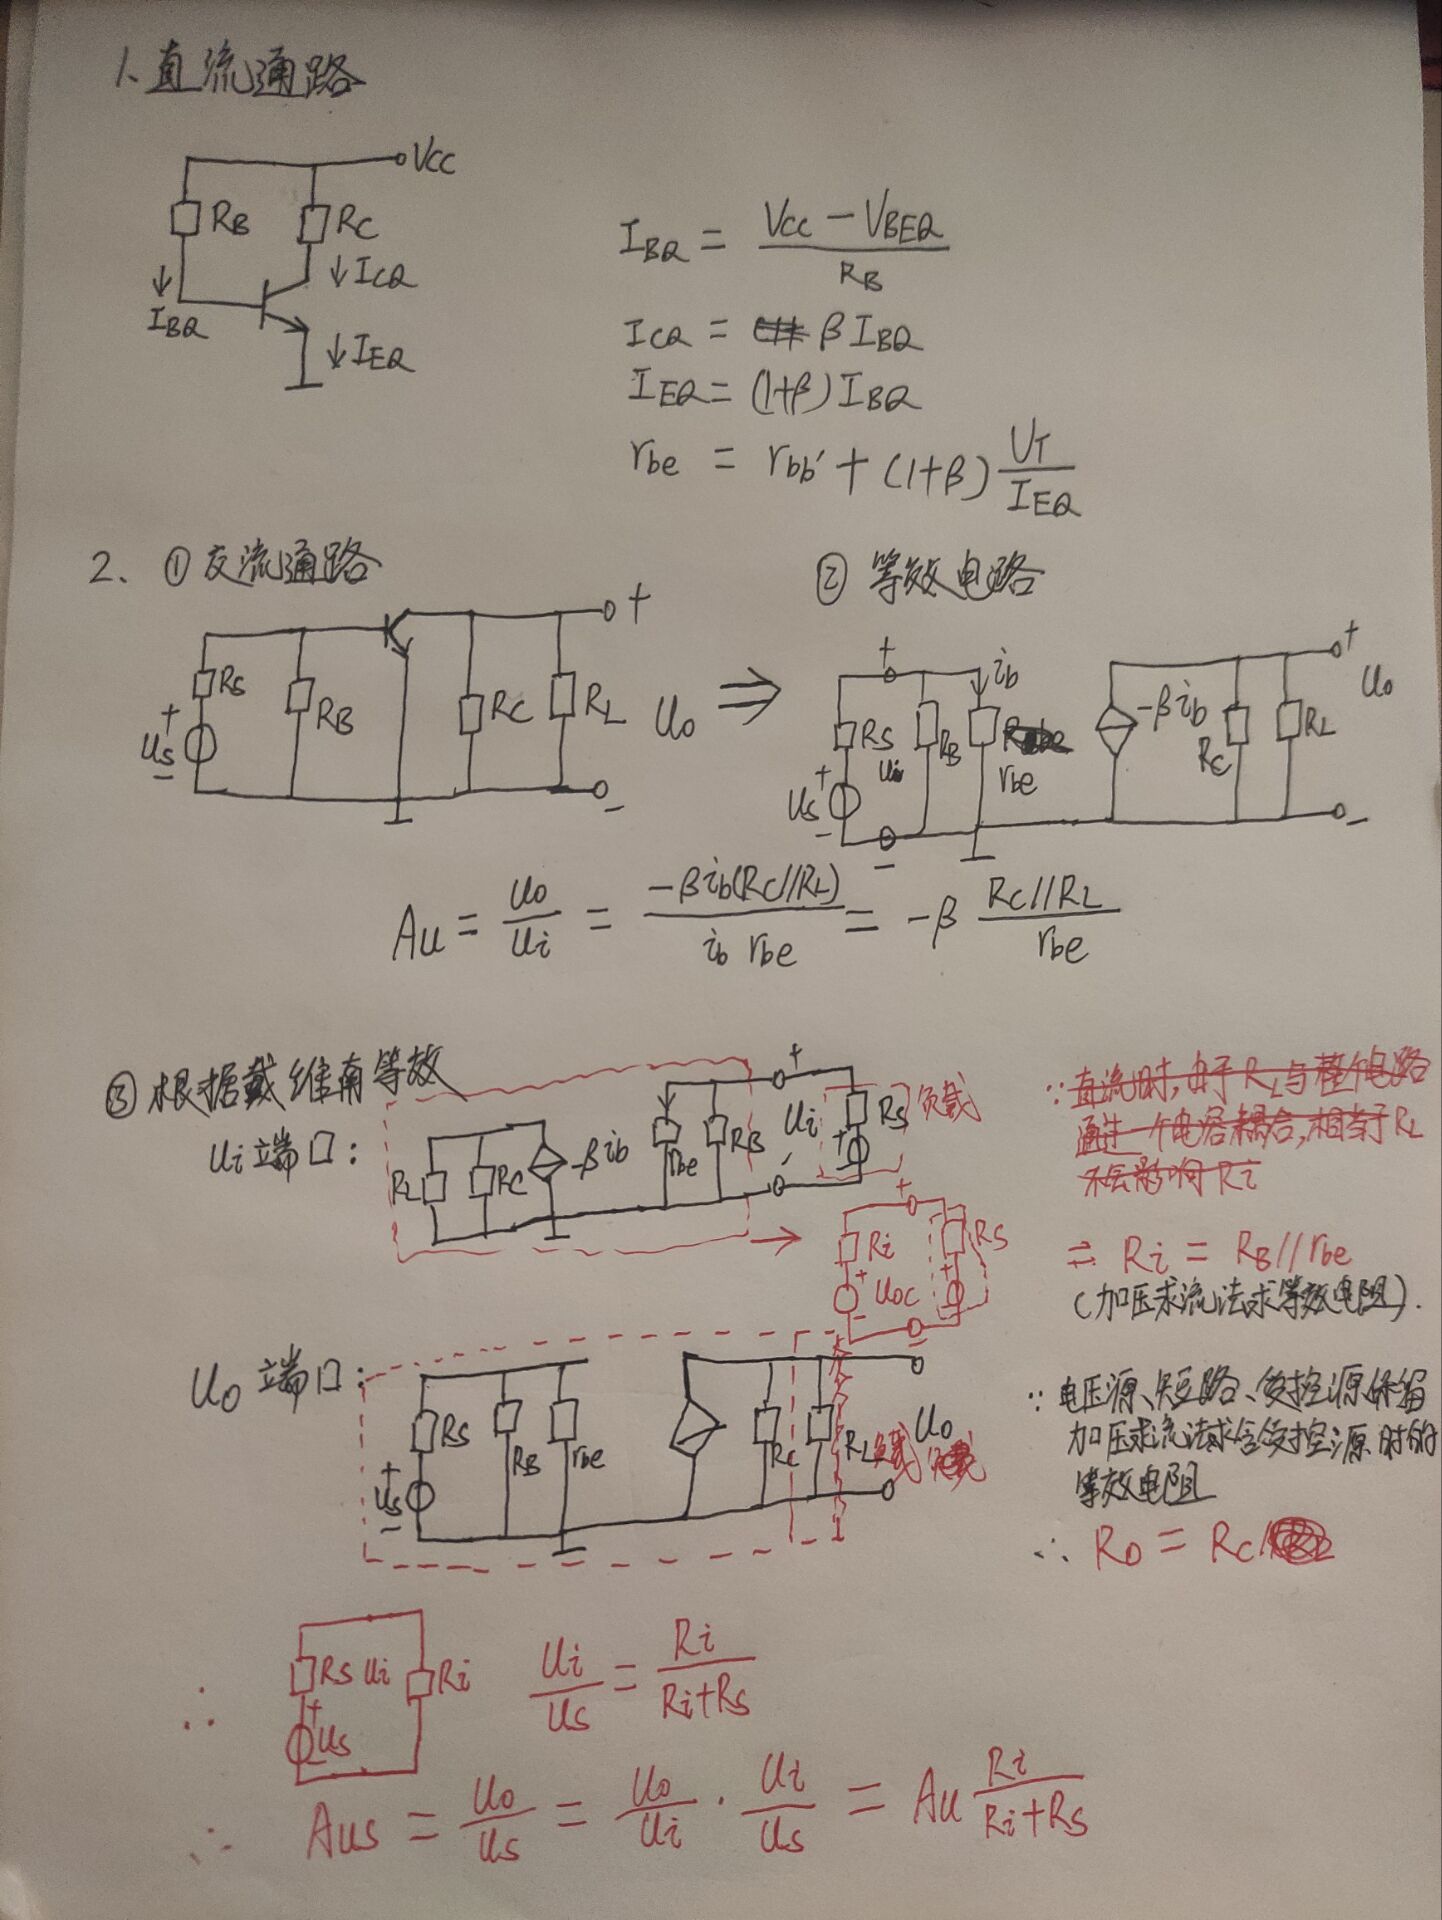 1、直流通路
VCC
RB
RC
ICQ
IBQ
IEQ
IBQ = (VCC − VBEQ) / RB
ICQ = β IBQ
IEQ = (1+β) IBQ
rbe = rbb' + (1+β) UT / IEQ
2、①交流通路
②等效电路
+
RS
RB
RC
RL
Uo
+
US
−
−
⇒
+
ib
+
RS
RB
rbe
−βib
RC
RL
Uo
Ui
+
US
−
−
−
Au = uo / ui = −βib(RC//RL) / ib rbe = −β RC//RL / rbe
③根据戴维南等效
Ui端口：
RL
RC
−βib
rbe
RB
+
Ui
−
RS
+
负载
∵直流时，由于RL与整个电路
通过一个电容耦合，相当于RL
不会影响Ri
→
Ri
+
Uoc
−
+
RS
+
−
⇒ Ri = RB//rbe
（加压求流法求等效电阻）.
Uo端口：
RS
RB
rbe
+
US
−
RC
RL
负载
Uo
负载
∵电压源、短路、受控源保留
加压求流法求含受控源时的
等效电阻
∴ Ro = RC
∴
RS
Ui
Ri
+
US
−
Ui / US = Ri / (Ri+RS)
∴ Aus = Uo / US = Uo / Ui · Ui / US = Au Ri / (Ri+RS)